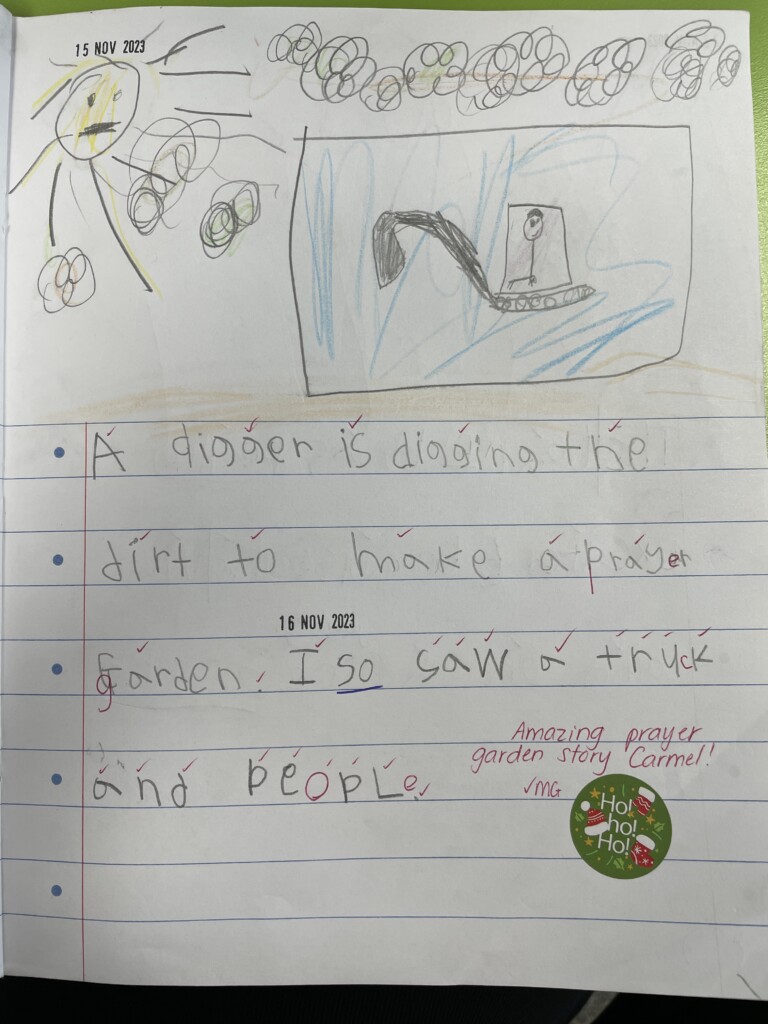 15 NOV 2023
A digger is digging the
dirt to make a prayer
16 NOV 2023
garden. I so saw a truck
and people.
Amazing prayer
garden story Carmel!
✓MG
Ho!
ho!
Ho!